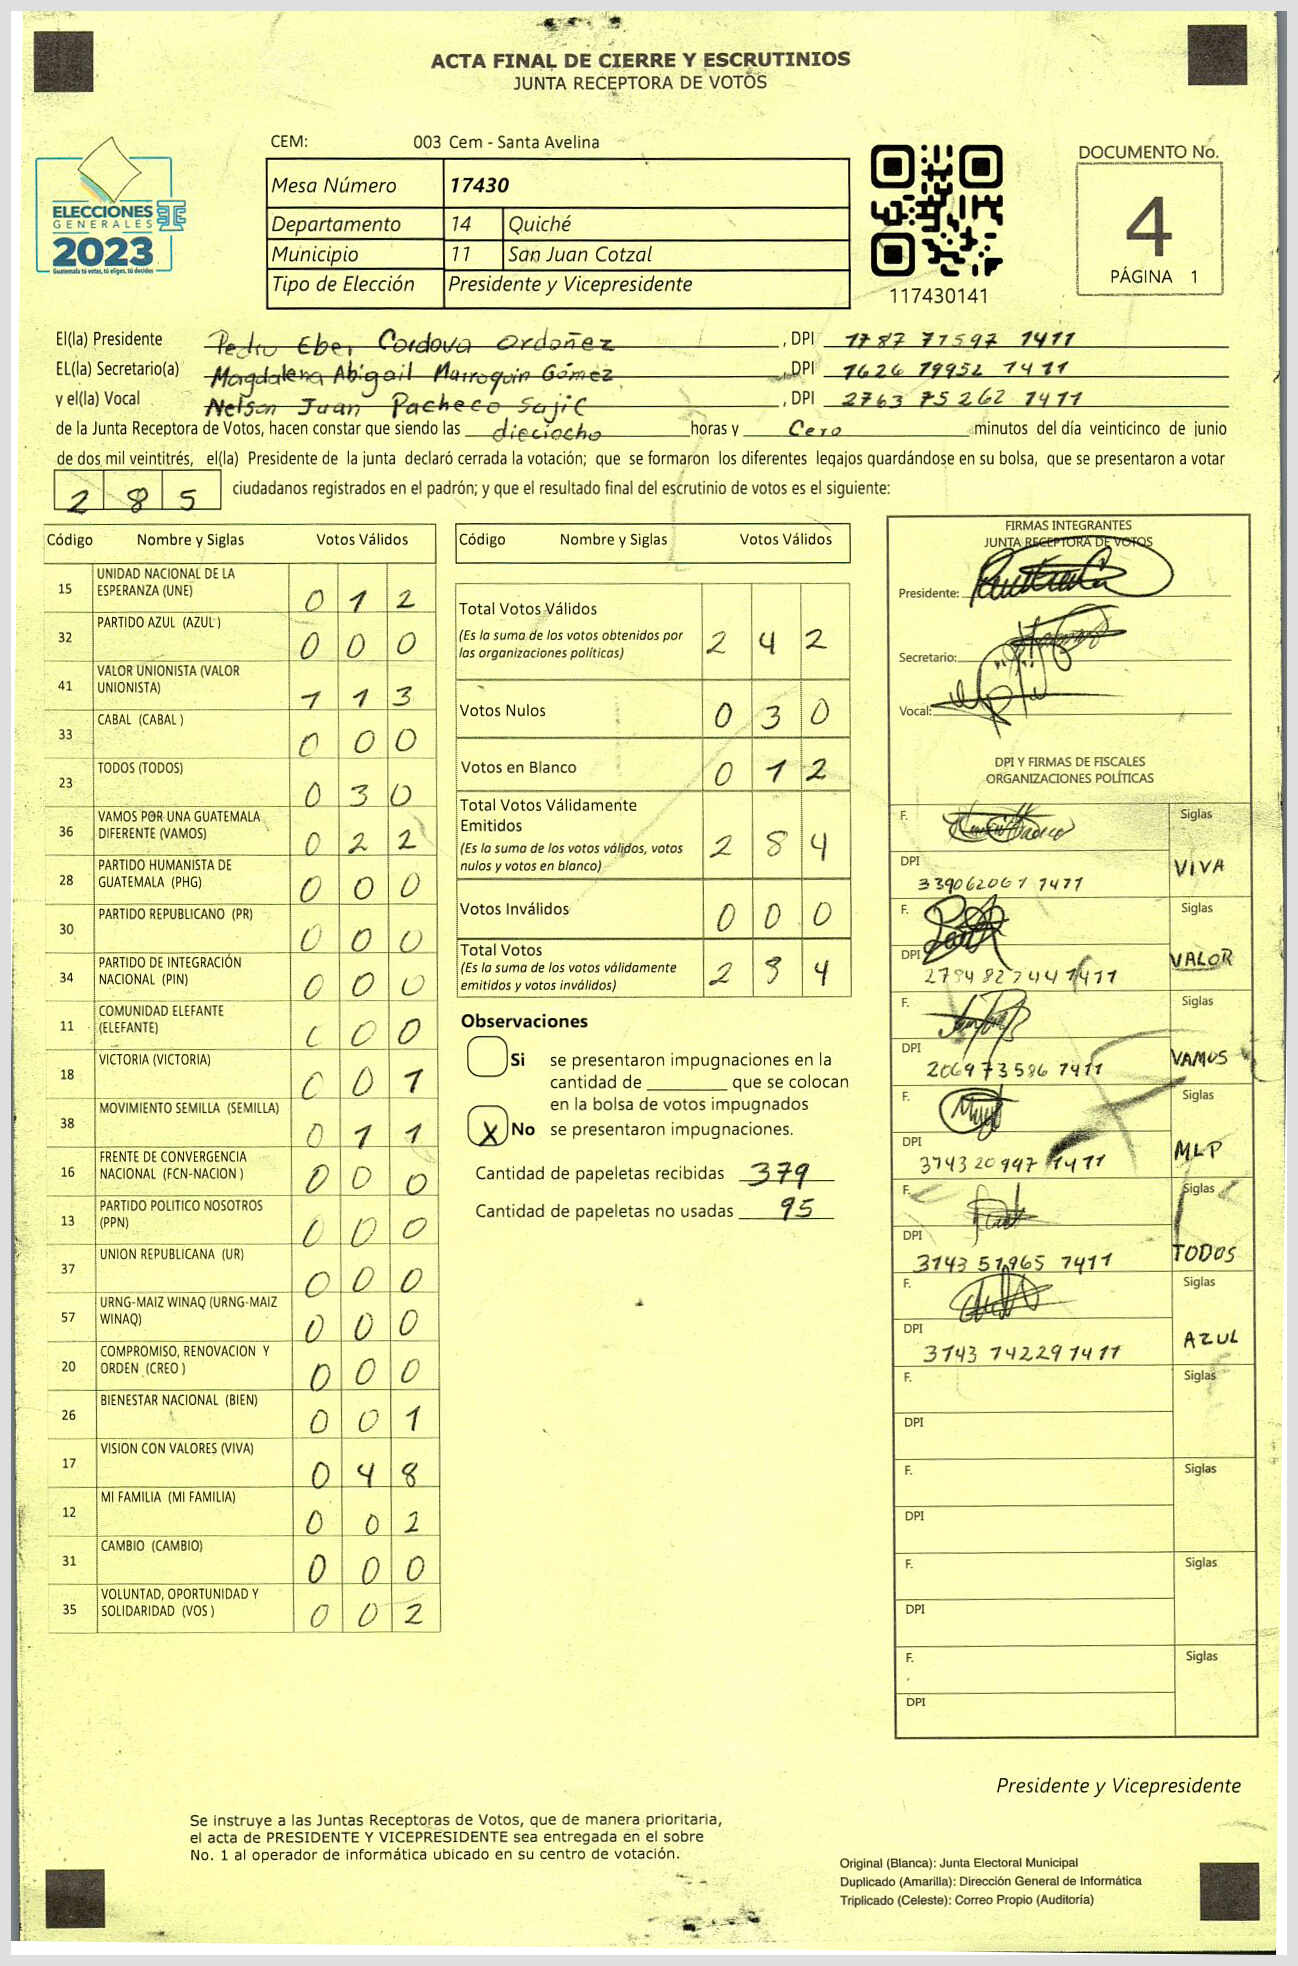 ACTA FINAL DE CIERRE Y ESCRUTINIOS
JUNTA RECEPTORA DE VOTOS
CEM: 003 Cem - Santa Avelina
Mesa Número 17430
Departamento 14 Quiché
Municipio 11 San Juan Cotzal
Tipo de Elección Presidente y Vicepresidente
ELECCIONES
GENERALES
2023
Guatemala tú votas, tú eliges, tú decides
117430141
DOCUMENTO No.
4
PÁGINA 1
El(la) Presidente Pedro Eber Cordova Ordoñez , DPI 1787 77597 1411
EL(la) Secretario(a) Magdalena Abigail Marroquin Gómez , DPI 1626 19952 1411
y el(la) Vocal Nelson Juan Pacheco Sajic , DPI 2763 75262 1411
de la Junta Receptora de Votos, hacen constar que siendo las dieciocho horas y Cero minutos del día veinticinco de junio
de dos mil veintitrés, el(la) Presidente de la junta declaró cerrada la votación; que se formaron los diferentes legajos guardándose en su bolsa, que se presentaron a votar
285 ciudadanos registrados en el padrón; y que el resultado final del escrutinio de votos es el siguiente:
Código Nombre y Siglas Votos Válidos
15 UNIDAD NACIONAL DE LA ESPERANZA (UNE) 012
32 PARTIDO AZUL (AZUL ) 000
41 VALOR UNIONISTA (VALOR UNIONISTA) 113
33 CABAL (CABAL ) 000
23 TODOS (TODOS) 030
36 VAMOS POR UNA GUATEMALA DIFERENTE (VAMOS) 022
28 PARTIDO HUMANISTA DE GUATEMALA (PHG) 000
30 PARTIDO REPUBLICANO (PR) 000
34 PARTIDO DE INTEGRACIÓN NACIONAL (PIN) 000
11 COMUNIDAD ELEFANTE (ELEFANTE) 000
18 VICTORIA (VICTORIA) 001
38 MOVIMIENTO SEMILLA (SEMILLA) 011
16 FRENTE DE CONVERGENCIA NACIONAL (FCN-NACION ) 000
13 PARTIDO POLITICO NOSOTROS (PPN) 000
37 UNION REPUBLICANA (UR) 000
57 URNG-MAIZ WINAQ (URNG-MAIZ WINAQ) 000
20 COMPROMISO, RENOVACION Y ORDEN (CREO ) 000
26 BIENESTAR NACIONAL (BIEN) 001
17 VISION CON VALORES (VIVA) 048
12 MI FAMILIA (MI FAMILIA) 002
31 CAMBIO (CAMBIO) 000
35 VOLUNTAD, OPORTUNIDAD Y SOLIDARIDAD (VOS ) 002
Código Nombre y Siglas Votos Válidos
Total Votos Válidos 242
(Es la suma de los votos obtenidos por
las organizaciones políticas)
Votos Nulos 030
Votos en Blanco 012
Total Votos Válidamente
Emitidos 284
(Es la suma de los votos válidos, votos
nulos y votos en blanco)
Votos Inválidos 000
Total Votos 284
(Es la suma de los votos válidamente
emitidos y votos inválidos)
Observaciones
Si se presentaron impugnaciones en la
cantidad de ________ que se colocan
en la bolsa de votos impugnados
X No se presentaron impugnaciones.
Cantidad de papeletas recibidas 379
Cantidad de papeletas no usadas 95
FIRMAS INTEGRANTES
JUNTA RECEPTORA DE VOTOS
Presidente:
Secretario:
Vocal:
DPI Y FIRMAS DE FISCALES
ORGANIZACIONES POLÍTICAS
F. Siglas
DPI VIVA
339062061 1411
F. Siglas
DPI VALOR
2794827441411
F. Siglas
DPI VAMOS
206973586 1411
F. Siglas
DPI MLP
3143 20997 1411
F. Siglas
DPI TODOS
3143 51965 1411
F. Siglas
DPI AZUL
3143 74229 1411
F. Siglas
DPI
F. Siglas
DPI
F. Siglas
DPI
F. Siglas
DPI
Presidente y Vicepresidente
Se instruye a las Juntas Receptoras de Votos, que de manera prioritaria,
el acta de PRESIDENTE Y VICEPRESIDENTE sea entregada en el sobre
No. 1 al operador de informática ubicado en su centro de votación.
Original (Blanca): Junta Electoral Municipal
Duplicado (Amarilla): Dirección General de Informática
Triplicado (Celeste): Correo Propio (Auditoría)